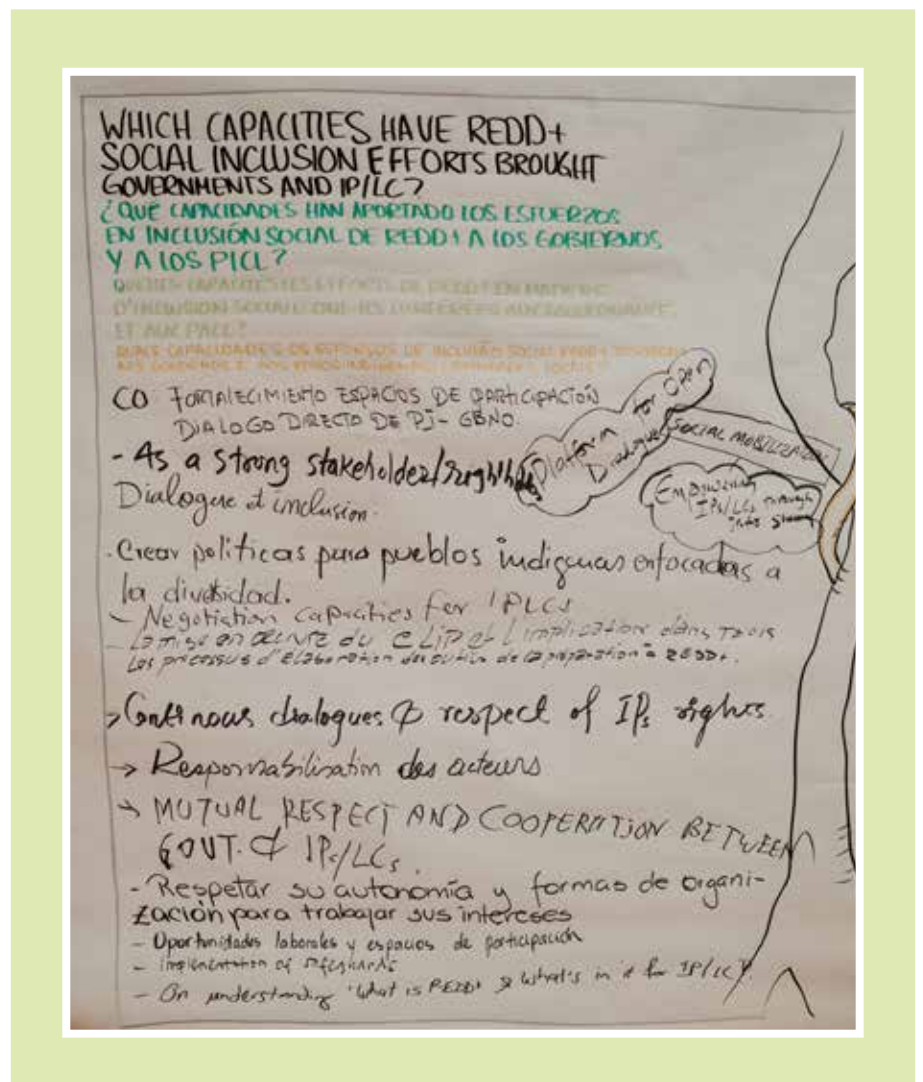 WHICH CAPACITIES HAVE REDD+
SOCIAL INCLUSION EFFORTS BROUGHT
GOVERNMENTS AND IP/LC?
¿QUÉ CAPACIDADES HAN APORTADO LOS ESFUERZOS
EN INCLUSIÓN SOCIAL DE REDD+ A LOS GOBIERNOS
Y A LOS PICL?
EFFORTS DE REDD+ EN
D'INCLUSION SOCIALE
ET AUX PACL?
CAPACIDADES OS ESFORÇOS DE INCLUSÃO SOCIAL REDD+
CO FORTALECIMIENTO ESPACIOS DE PARTICIPACIÓN
DIALOGO DIRECTO DE PI- GBNO.
Platform for Open
Dialogue
SOCIAL MOBILIZATION
- As a strong stakeholder/
Empowering
IPs/LCs through
Dialogue et inclusion.
- Crear politicas para pueblos indigenas enfocadas a
la diversidad.
- Negotiation capacities for IPLCs
- La mise en œuvre du CLIP et l'implication dans tous
Les processus d'élaboration des outils de la préparation à REDD+.
> Continous dialogues & respect of IPs rights
→ Responsabilisation des acteurs
→ MUTUAL RESPECT AND COOPERATION BETWEEN
GOVT. & IPs/LCs.
- Respetar su autonomía y formas de organi-
zación para trabajar sus intereses
- Oportunidades laborales y espacios de participación
- implementation of safeguards
- On understanding 'what is REDD+ & what's in it for IP/LC?'